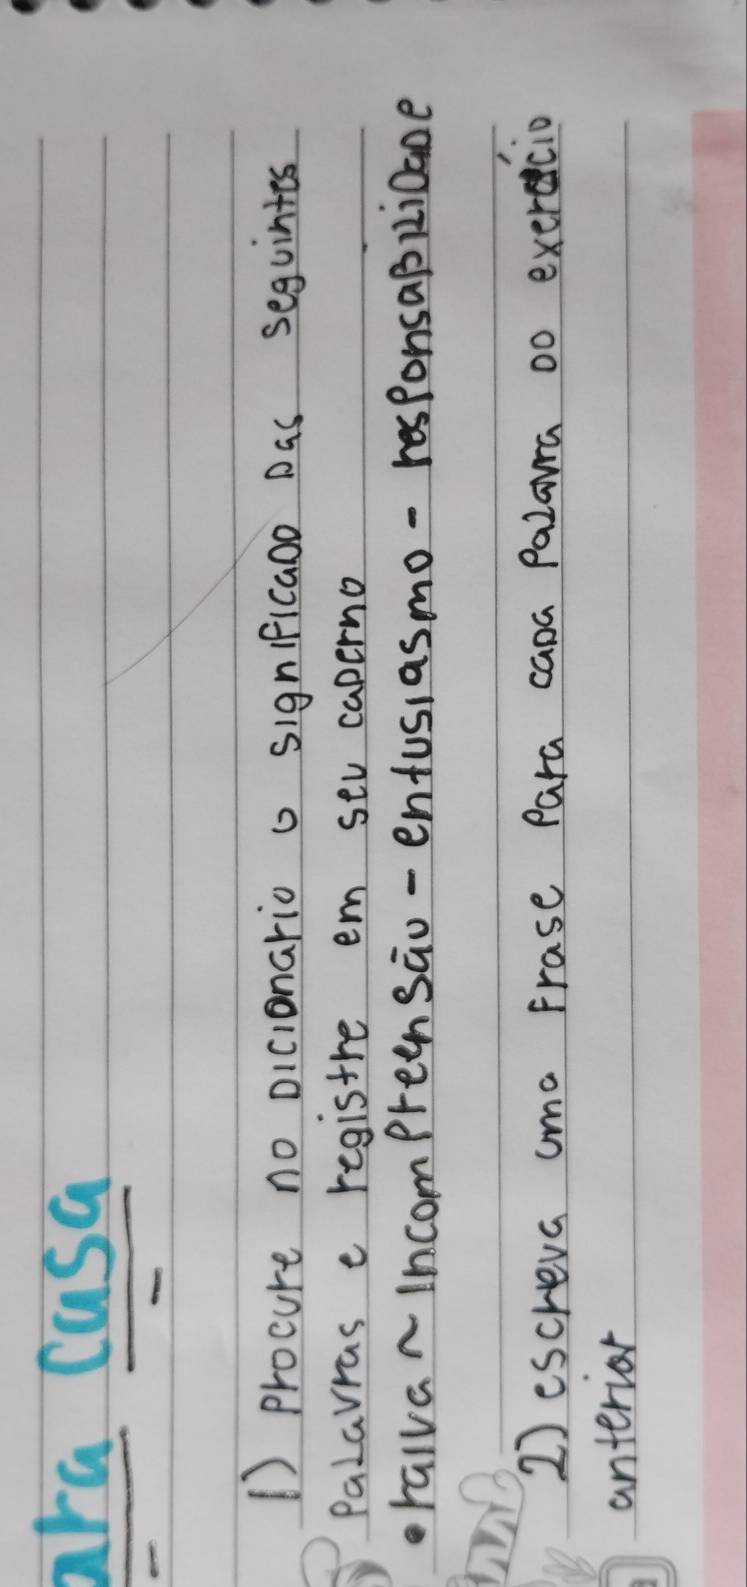 ara casa
1) Procure no Dicionario o significado Das seguintes
Palavras e registre em seu caderno
• raiva ~ Incompreensão - entusiasmo - responsabiliDade
2) escreva uma frase Para cada Palavra do exercício
anterior